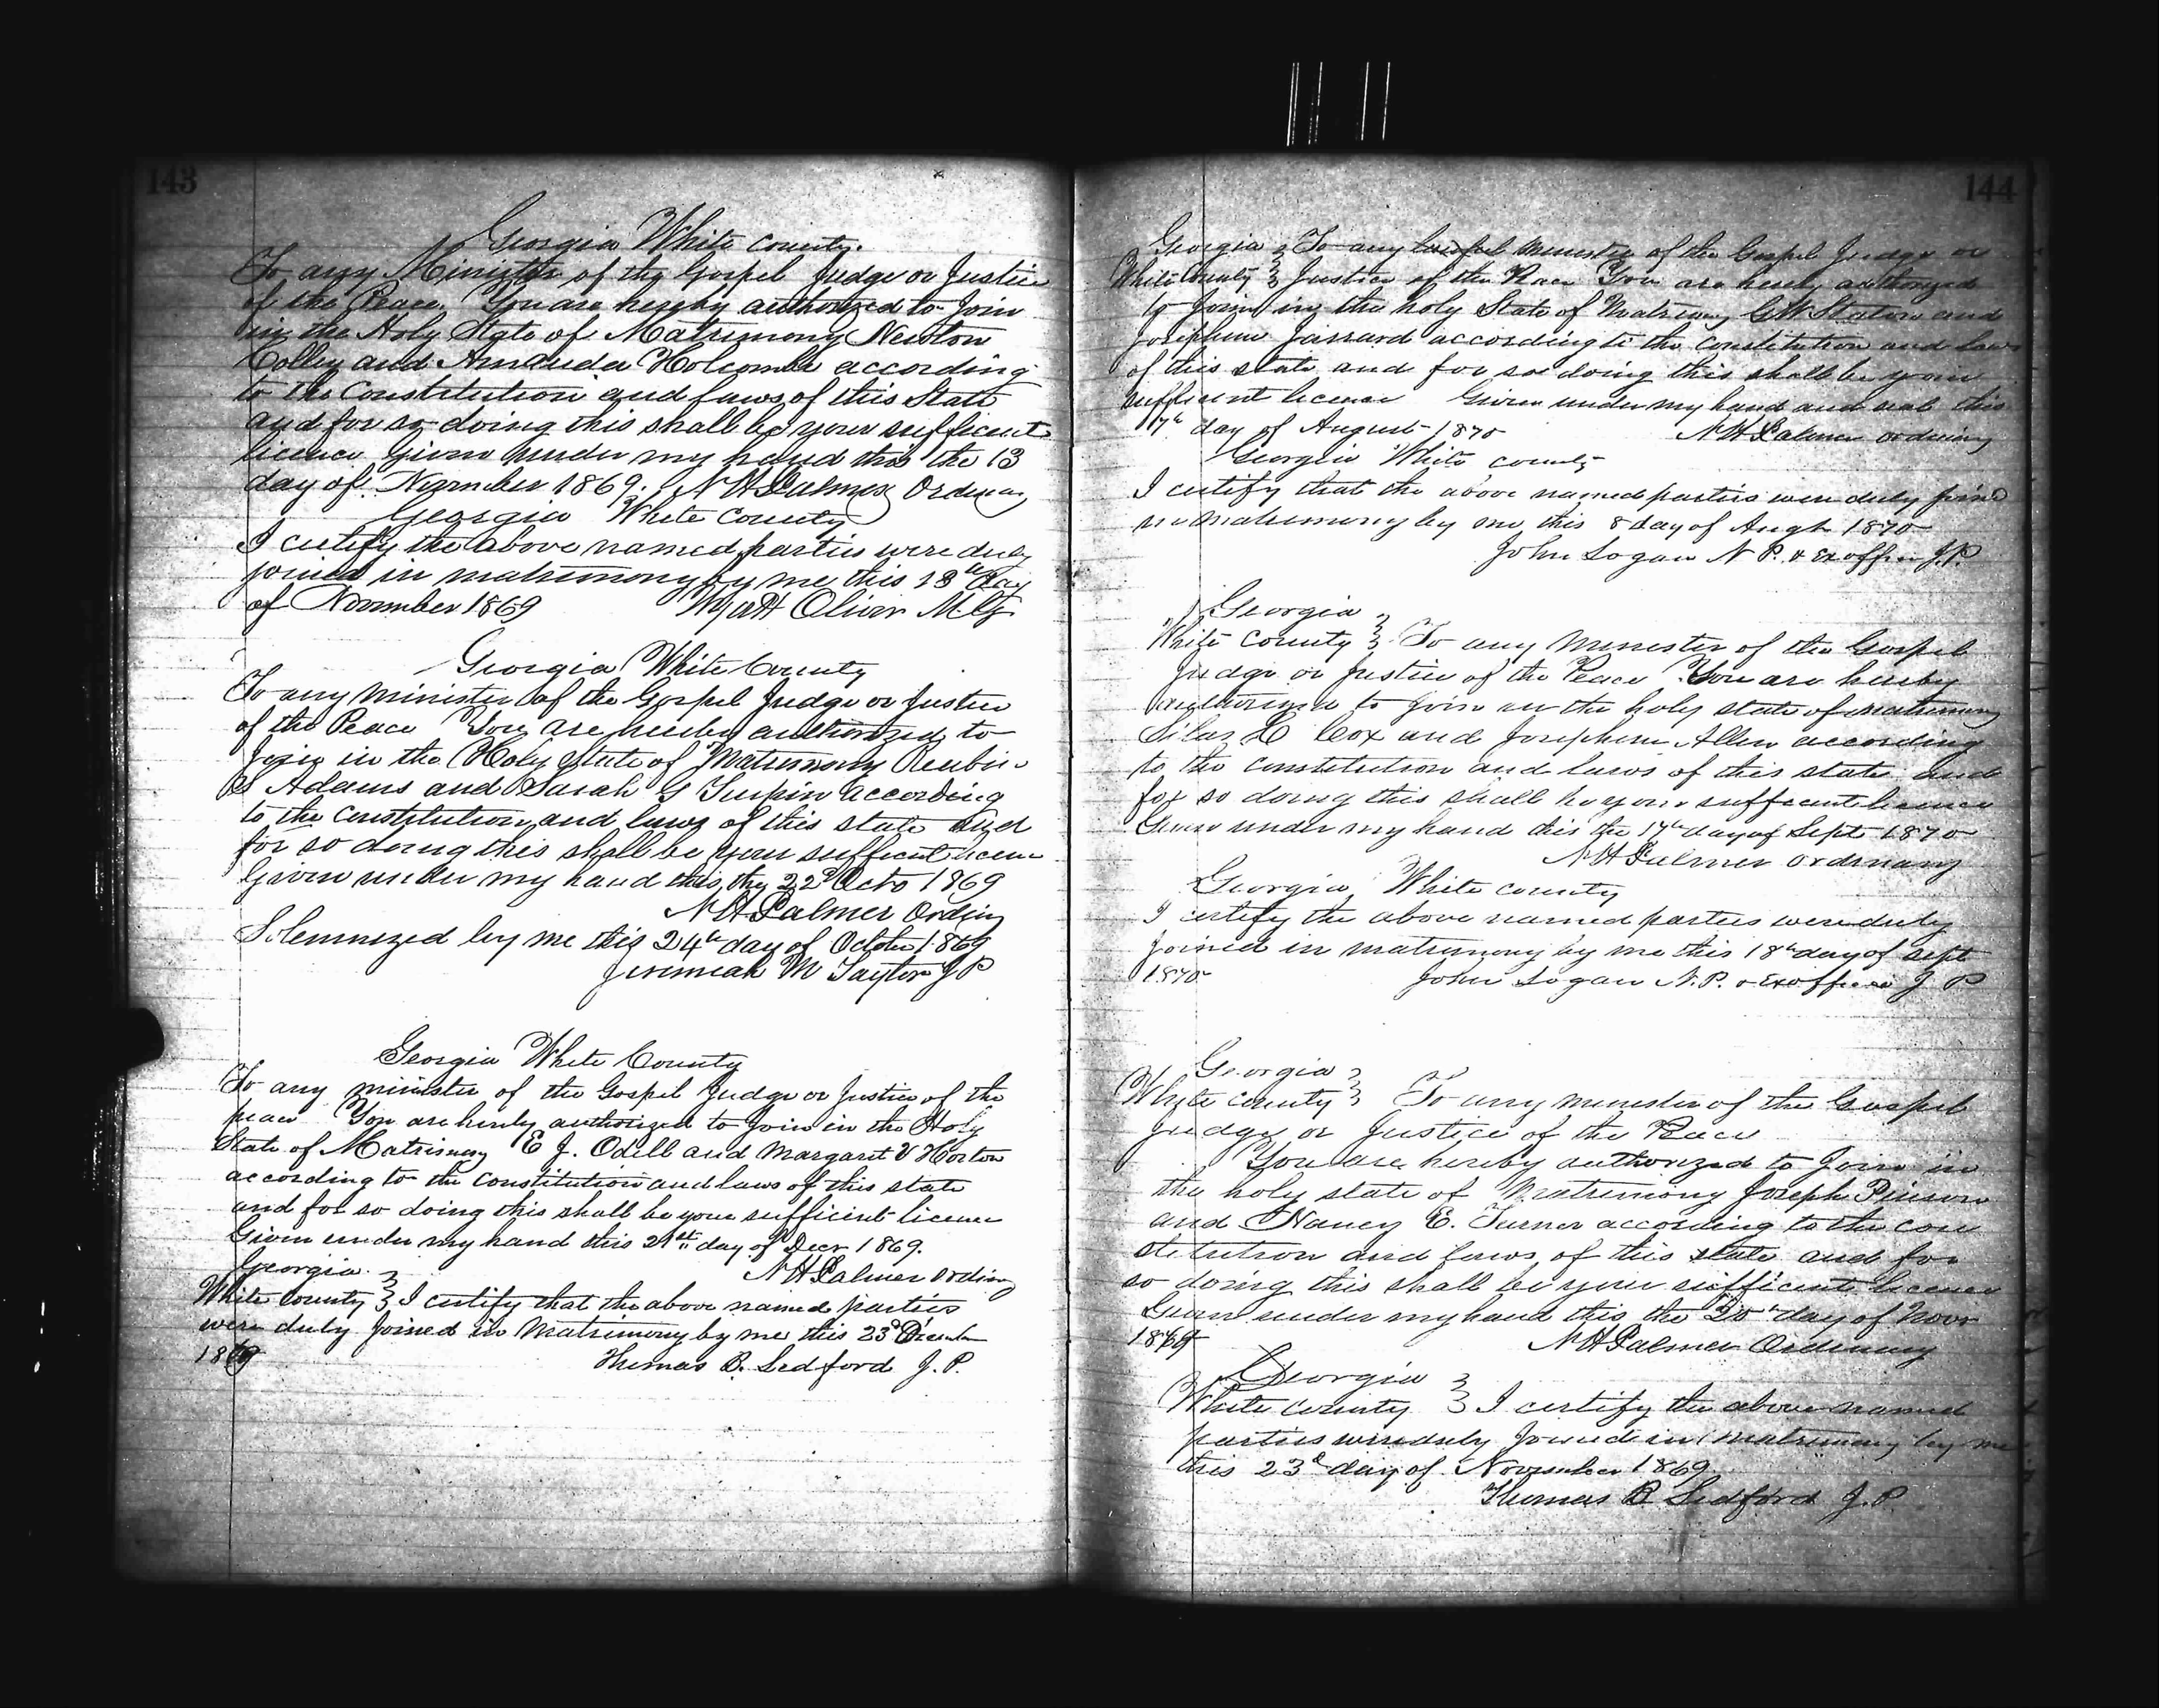 143
Georgia White County.
To any Minister of the Gospel Judge or Justice
of the Peace. You are hereby authorized to Join
in the Holy State of Matrimony Newton
Colley and Amanda Holcomb according
to the Constitution and laws of this State
and for so doing this shall be your sufficient
licence Given under my hand this the 13
day of November 1869. N H Palmer Ordinary
Georgia White County
I certify the above named parties were duly
joined in matrimony by me this 18th day
of November 1869 Oliver M.G.
Georgia White County
To any minister of the Gospel Judge or Justice
of the Peace You are hereby authorized to
Join in the Holy State of Matrimony Reubin
S Adams and Sarah G Turpin according
to the Constitution and laws of this state and
for so doing this shall be your sufficient licence
Given under my hand this the 22d Octo 1869
N H Palmer Ordiny
Solemnized by me this 24th day of October 1869
Jeremiah M Taylor J P
Georgia White County
To any minister of the Gospel Judge or Justice of the
peace You are hereby authorized to Join in the Holy
State of Matrimony E J. Odell and Margaret V Horton
according to the Constitution and laws of this state
and for so doing this shall be your sufficient licence
Given under my hand this 21st day of Decr 1869.
Georgia N H Palmer Ordiny
White County } I certify that the above named parties
were duly Joined in Matrimony by me this 23d Decembr
1869 Thomas B. Ledford J. P.
144
Georgia } To any lawful minister of the Gospel Judge or
White County } Justice of the Peace You are hereby authorized
to Join in the holy State of Matrimony G W Staton and
Josephine Jarrard according to the Constitution and laws
of this state and for so doing this shall be your
sufficient licence Given under my hand and seal this
7th day of August 1870 N H Palmer ordinary
Georgia White county
I certify that the above named parties were duly joined
in matrimony by me this 8 day of Augt 1870
John Logan N P. & Ex officio J.P.
Georgia }
White County } To any Minester of the Gospel
Judge or Justice of the Peace You are hereby
authorized to Join in the holy state of matrimony
Silas L Cox and Josephine Allen according
to the constitution and laws of this state and
for so doing this shall be your sufficent licence
Given under my hand this the 17th day of Sept 1870
N H Palmer ordinary
Georgia, White county
I certify the above named parties were duly
Joined in matrimony by me this 18th day of Sept
1870 John Logan N.P. & Ex officio J P
Georgia }
White County } To any minester of the Gospel
Judge or Justice of the Peace
You are hereby authorized to Join in
the holy state of Matrimony Joseph Pinson
and Nancy E. Turner according to the con
stitution and laws of this state and for
so doing this shall be your sufficient licence
Given under my hand this the 20th day of Novr
1869 N H Palmer Ordinary
Georgia }
White County } I certify the above named
parties were duly Joined in matrimony by me
this 23d day of November 1869
Thomas B Ledford J.P.